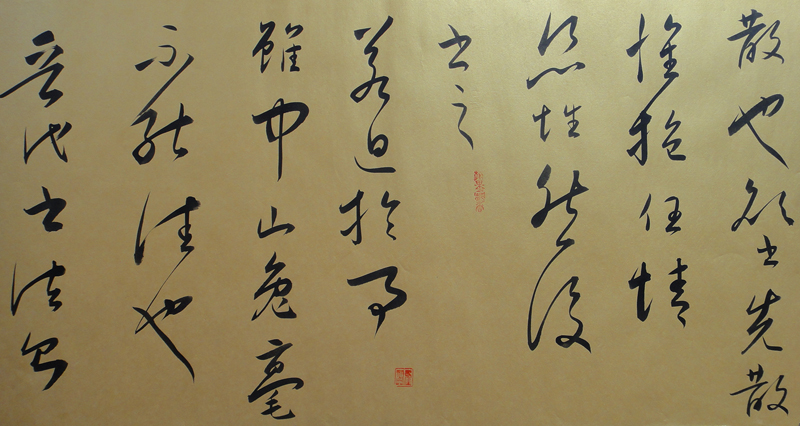 散也欲书先散
懷抱任情
恣性然後
书之
若迫於事
雖中山兔毫
不能佳也
晋代书法